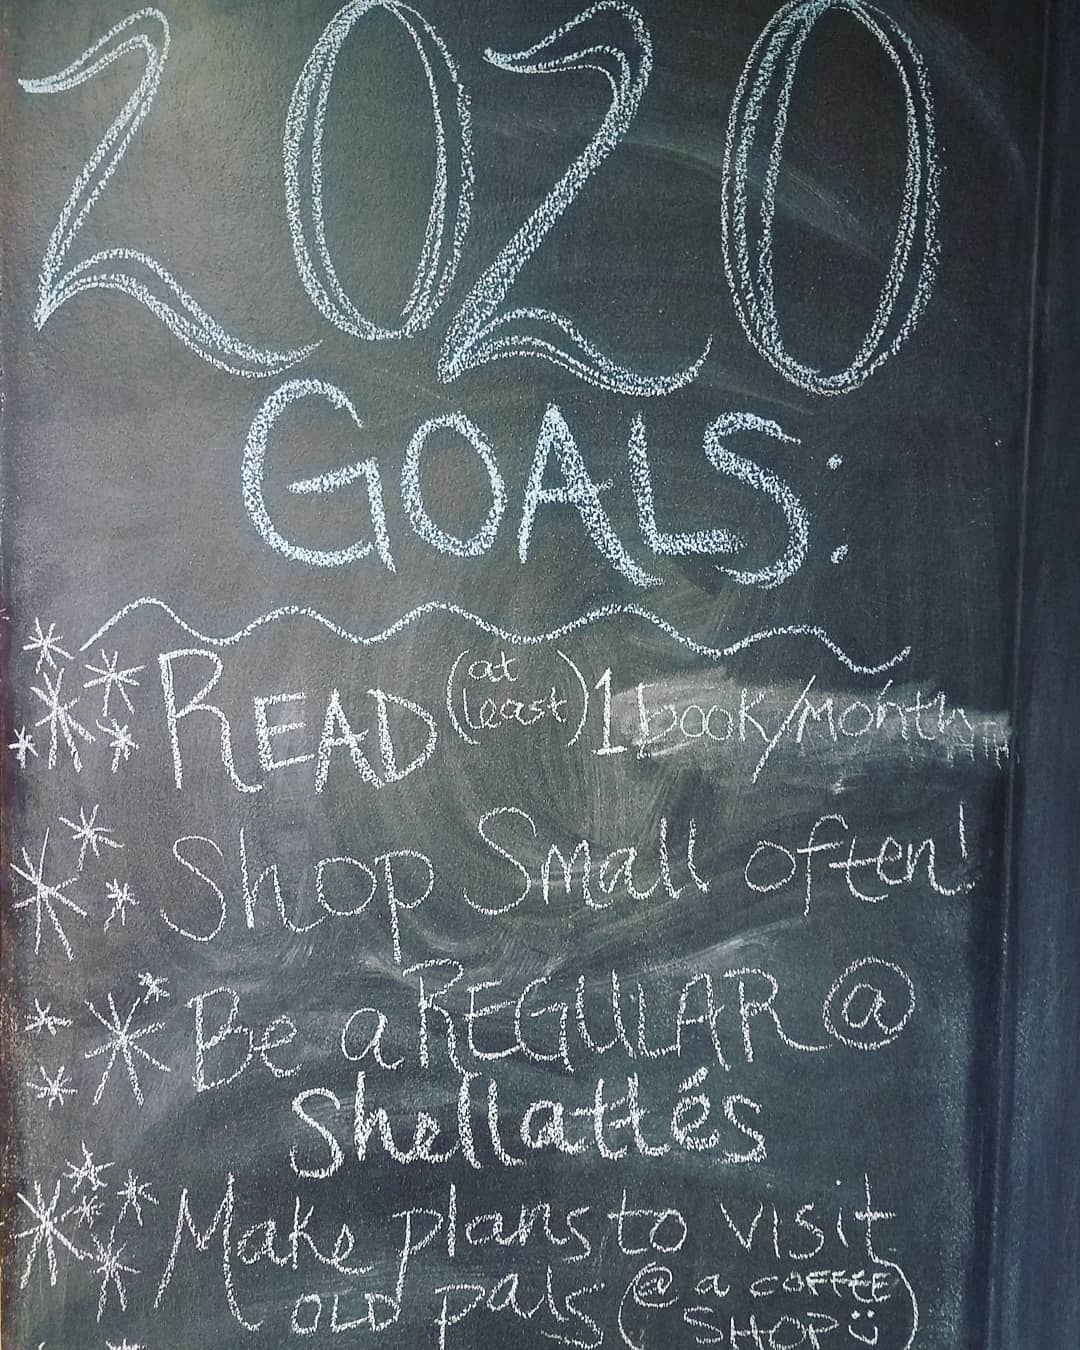 2020
GOALS:
READ (at least) 1 book/month
Shop Small often!
Be a REGULAR @
Shellattés
Make plans to visit
OLD pals (@ a COFFEE
SHOP)